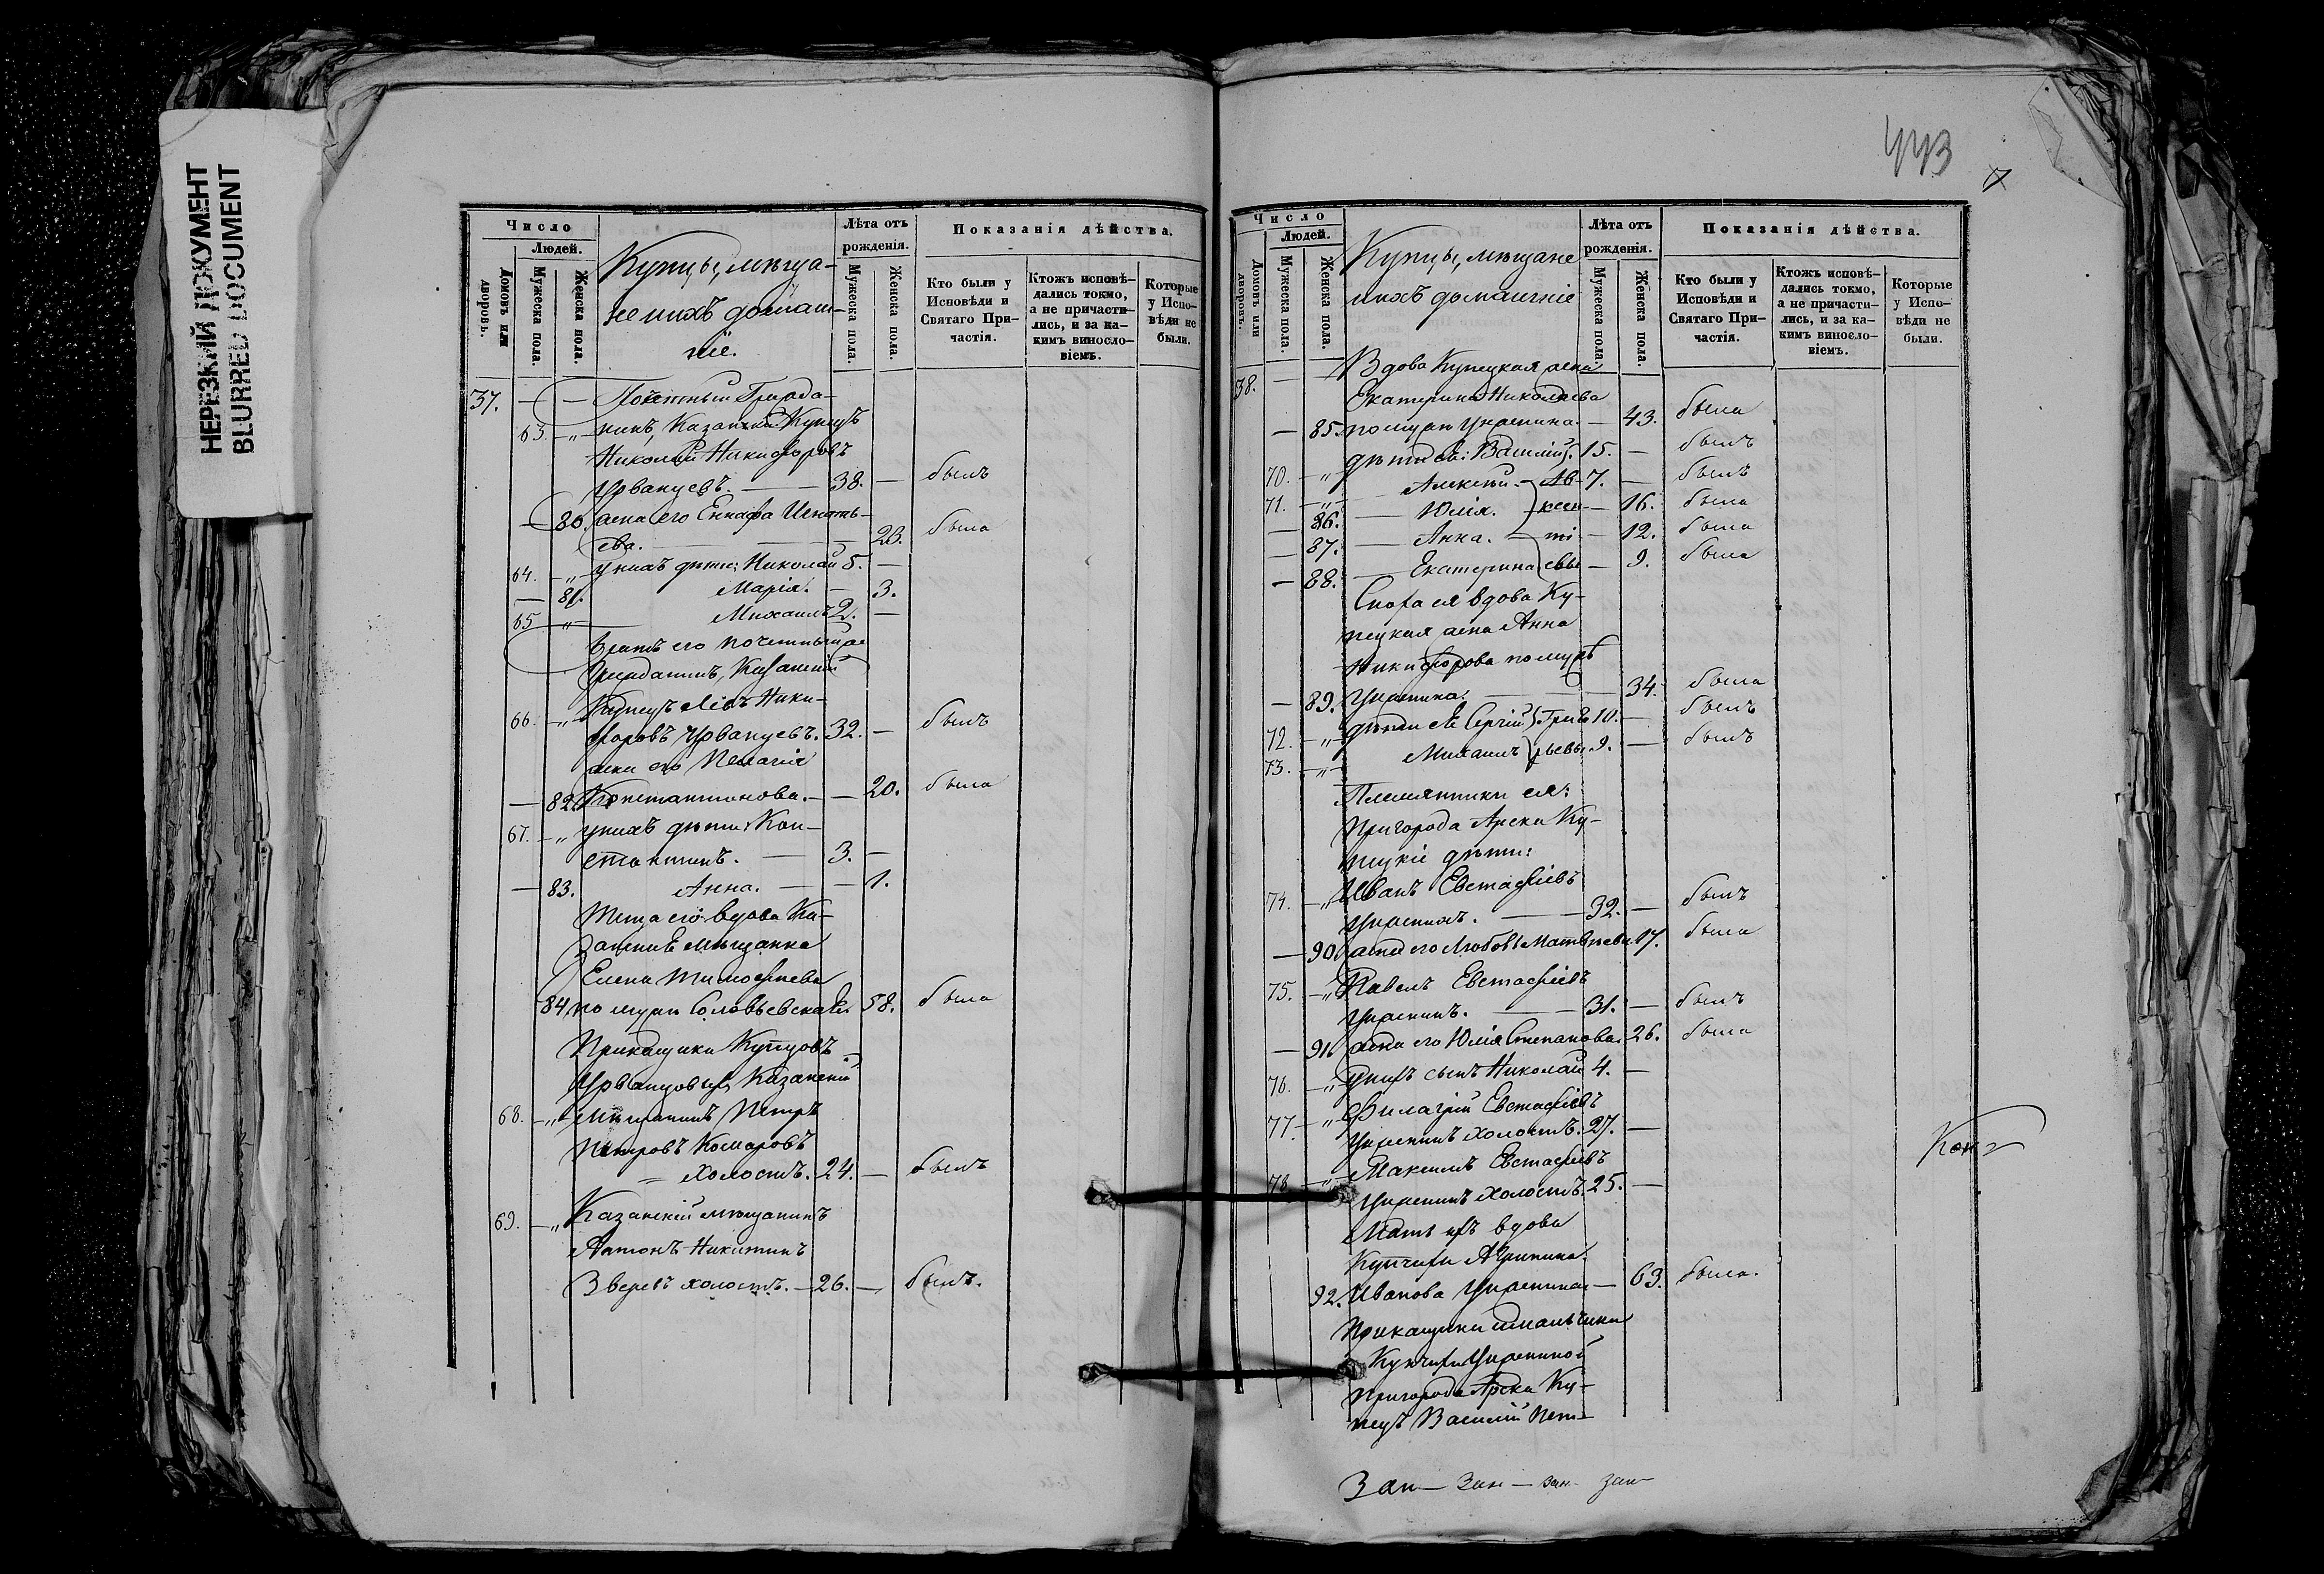 НЕРЕЗКИЙ ДОКУМЕНТ
BLURRED DOCUMENT
Число
Людей.
Домовъ или дворовъ.
Мужеска пола.
Женска пола.
Купцы, мѣща-
не и ихъ домаш-
ніе.
Лѣта отъ
рожденія.
Мужеска пола.
Женска пола.
Показанія дѣйства.
Кто были у
Исповѣди и
Святаго При-
частія.
Ктожъ исповѣ-
дались токмо,
а не причасти-
лись, и за ка-
кимъ винословіемъ.
Которые
у Испо-
вѣди не
были.
37. — — Почетный Гражда-
63. — „ — нинъ, Казанскій Купецъ
Николай Никифоровъ
Урванцевъ. — 38. — былъ
— 80. жена его
ева. — 23. была
64. — „ — у нихъ дѣти: Николай 5. —
— 81. Марія. — 3.
65 — „ — Михаилъ 2. —
Братъ его почетный
Гражданинъ, Казанскій
66. — „ — Купецъ Левъ Ники-
форовъ Урванцевъ. 32. — былъ
жена его Пелагія
— 82. Константинова. — — 20. была
67. — „ у нихъ дѣти: Кон-
стантинъ. — 3. —
— 83. Анна. — — 1.
Теща его вдова Ка-
занская мѣщанка
Елена Тимофеева
84. по мужѣ Соловьевская. 58. была
Прикащики Купцовъ
Урванцовыхъ, Казанскій
68. — „ — Мѣщанинъ Петръ
Петровъ Комаровъ
— холостъ. 24. — былъ
69. — „ Казанскій мѣщанинъ
Антонъ Никитинъ
Зверевъ холостъ. — 26. — былъ.
443
7
Число
Людей.
Домовъ или дворовъ.
Мужеска пола.
Женска пола.
Купцы, мѣщане
и ихъ домашніе
Лѣта отъ
рожденія.
Мужеска пола.
Женска пола.
Показанія дѣйства.
Кто были у
Исповѣди и
Святаго При-
частія.
Ктожъ исповѣ-
дались токмо,
а не причасти-
лись, и за ка-
кимъ винословіемъ.
Которые
у Испо-
вѣди не
были.
38. — — Вдова Купецкая жена
Екатерина Николаева
— 85. по мужѣ — 43. была
70. — „ дѣти ея: Василій. 15. — былъ
71. — „ — Алексѣй. — Ал- 7. — былъ
— 86. — Юлія. ксѣ- — 16. была
— 87. — Анна. — 12. была
— 88. — Екатерина евы — 9. была
Сноха ея вдова Ку-
пецкая жена Анна
Никифорова по мужѣ
— 89. — 34. была
72. — „ — дѣти ея Сергій Григо 10. — былъ
73. — „ — Михаилъ рьевы 9. — былъ
Племянники ея:
Пригорода Арска Ку-
пецкіе дѣти:
74. — „ Иванъ Евстафіевъ
— 32. — былъ
— 90. жена его Любовь Матвѣева. 17. была
75. — „ Павелъ Евстафіевъ
— 31. — былъ
— 91. жена его Юлія Степанова. 26. была
76. — „ — у нихъ сынъ Николай 4. —
77. — „ — Филагрій Евстафіевъ
холостъ. 27. —
78. — „ — Максимъ Евстафіевъ
холостъ. 25. —
Мать ихъ вдова
Купчиха Агрипина
92. Иванова — 63. была.
Прикащики и мальчики
Купчихи
Пригорода Арска Ку-
пецъ Василій Пет-
Зап — Зап — зап — зап